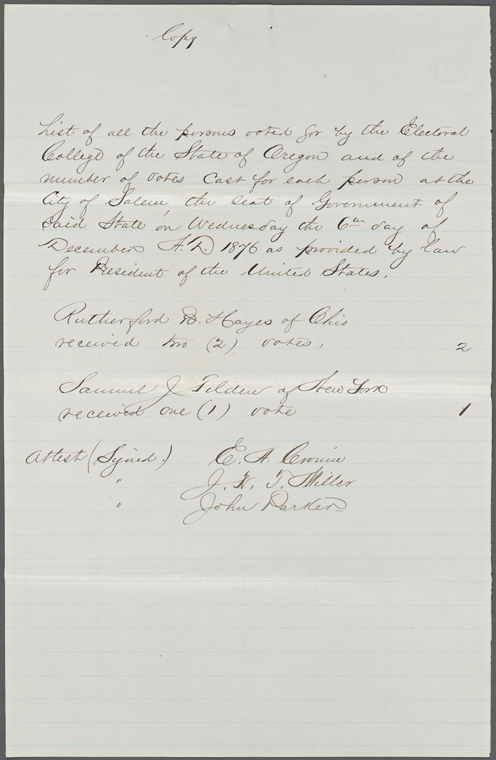 Copy
List of all the persons voted for by the Electoral
College of the State of Oregon and of the
number of votes cast for each person at the
City of Salem, the seat of Government of
said State, on Wednesday the 6th day of
December A.D 1876 as provided by law
for President of the United States.
Rutherford B. Hayes of Ohio
received two (2) votes. 2
Samuel J Tilden of New York
received one (1) vote 1
Attest (Signed.) E. A. Cronin
" J. N. T. Miller
" John Parker